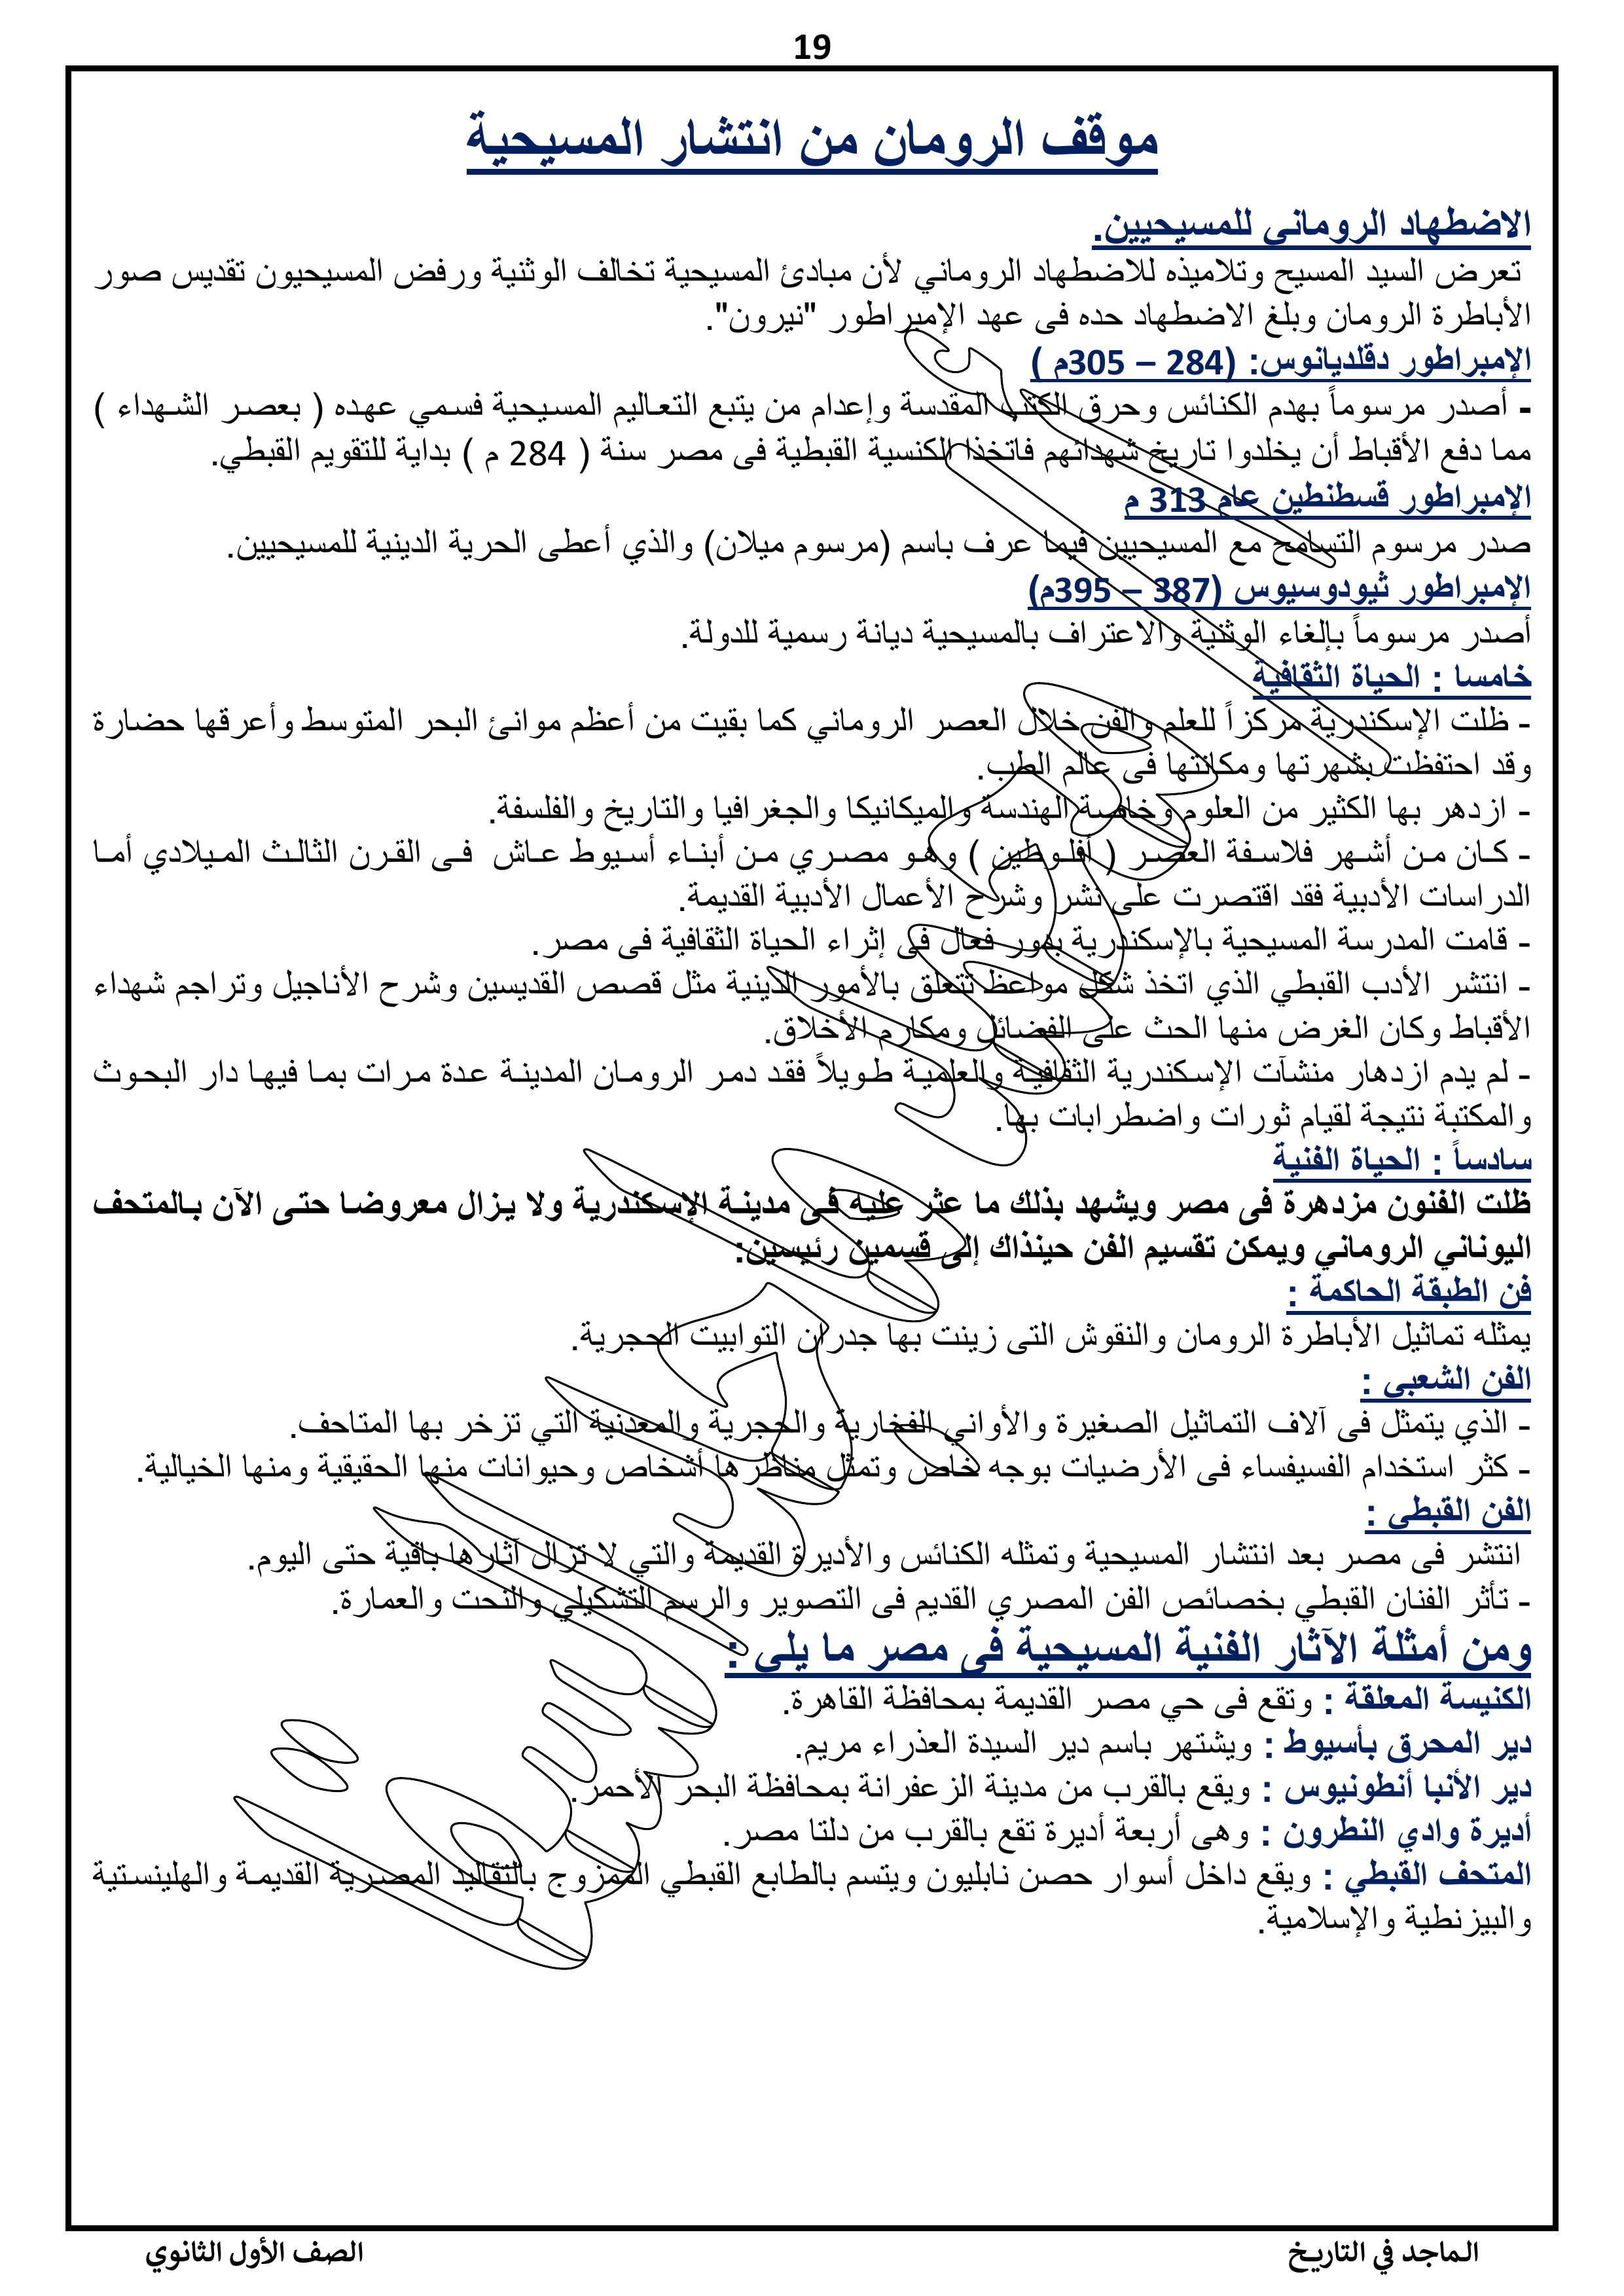 19
موقف الرومان من انتشار المسيحية
الاضطهاد الروماني للمسيحيين.
تعرض السيد المسيح وتلاميذه للاضطهاد الروماني لأن مبادئ المسيحية تخالف الوثنية ورفض المسيحيون تقديس صور
الأباطرة الرومان وبلغ الاضطهاد حده فى عهد الإمبراطور "نيرون".
الإمبراطور دقلديانوس: (284 – 305م )
- أصدر مرسوماً بهدم الكنائس وحرق الكتب المقدسة وإعدام من يتبع التعاليم المسيحية فسمي عهده ( بعصر الشهداء )
مما دفع الأقباط أن يخلدوا تاريخ شهدائهم فاتخذا الكنسية القبطية فى مصر سنة ( 284 م ) بداية للتقويم القبطي.
الإمبراطور قسطنطين عام 313 م
صدر مرسوم التسامح مع المسيحيين فيما عرف باسم (مرسوم ميلان) والذي أعطى الحرية الدينية للمسيحيين.
الإمبراطور ثيودوسيوس (387 – 395م)
أصدر مرسوماً بإلغاء الوثنية والاعتراف بالمسيحية ديانة رسمية للدولة.
خامسا : الحياة الثقافية
- ظلت الإسكندرية مركزاً للعلم والفن خلال العصر الروماني كما بقيت من أعظم موانئ البحر المتوسط وأعرقها حضارة
وقد احتفظت بشهرتها ومكانتها فى عالم الطب.
- ازدهر بها الكثير من العلوم وخاصة الهندسة والميكانيكا والجغرافيا والتاريخ والفلسفة.
- كان من أشهر فلاسفة العصر ( أفلوطين ) وهو مصري من أبناء أسيوط عاش فى القرن الثالث الميلادي أما
الدراسات الأدبية فقد اقتصرت على نشر وشرح الأعمال الأدبية القديمة.
- قامت المدرسة المسيحية بالإسكندرية بدور فعال فى إثراء الحياة الثقافية فى مصر.
- انتشر الأدب القبطي الذي اتخذ شكل مواعظ تتعلق بالأمور الدينية مثل قصص القديسين وشرح الأناجيل وتراجم شهداء
الأقباط وكان الغرض منها الحث على الفضائل ومكارم الأخلاق.
- لم يدم ازدهار منشآت الإسكندرية الثقافية والعلمية طويلاً فقد دمر الرومان المدينة عدة مرات بما فيها دار البحوث
والمكتبة نتيجة لقيام ثورات واضطرابات بها.
سادساً : الحياة الفنية
ظلت الفنون مزدهرة فى مصر ويشهد بذلك ما عثر عليه فى مدينة الإسكندرية ولا يزال معروضا حتى الآن بالمتحف
اليوناني الروماني ويمكن تقسيم الفن حينذاك إلى قسمين رئيسين:
فن الطبقة الحاكمة :
يمثله تماثيل الأباطرة الرومان والنقوش التى زينت بها جدران التوابيت الحجرية.
الفن الشعبي :
- الذي يتمثل فى آلاف التماثيل الصغيرة والأواني الفخارية والحجرية والمعدنية التي تزخر بها المتاحف.
- كثر استخدام الفسيفساء فى الأرضيات بوجه خاص وتمثل مناظرها أشخاص وحيوانات منها الحقيقية ومنها الخيالية.
الفن القبطي :
انتشر فى مصر بعد انتشار المسيحية وتمثله الكنائس والأديرة القديمة والتي لا تزال آثارها باقية حتى اليوم.
- تأثر الفنان القبطي بخصائص الفن المصري القديم فى التصوير والرسم التشكيلي والنحت والعمارة.
ومن أمثلة الآثار الفنية المسيحية فى مصر ما يلي :
الكنيسة المعلقة : وتقع فى حي مصر القديمة بمحافظة القاهرة.
دير المحرق بأسيوط : ويشتهر باسم دير السيدة العذراء مريم.
دير الأنبا أنطونيوس : ويقع بالقرب من مدينة الزعفرانة بمحافظة البحر الأحمر.
أديرة وادي النطرون : وهى أربعة أديرة تقع بالقرب من دلتا مصر.
المتحف القبطي : ويقع داخل أسوار حصن نابليون ويتسم بالطابع القبطي الممزوج بالتقاليد المصرية القديمة والهلينستية
والبيزنطية والإسلامية.
الماجد في التاريخ
الصف الأول الثانوي